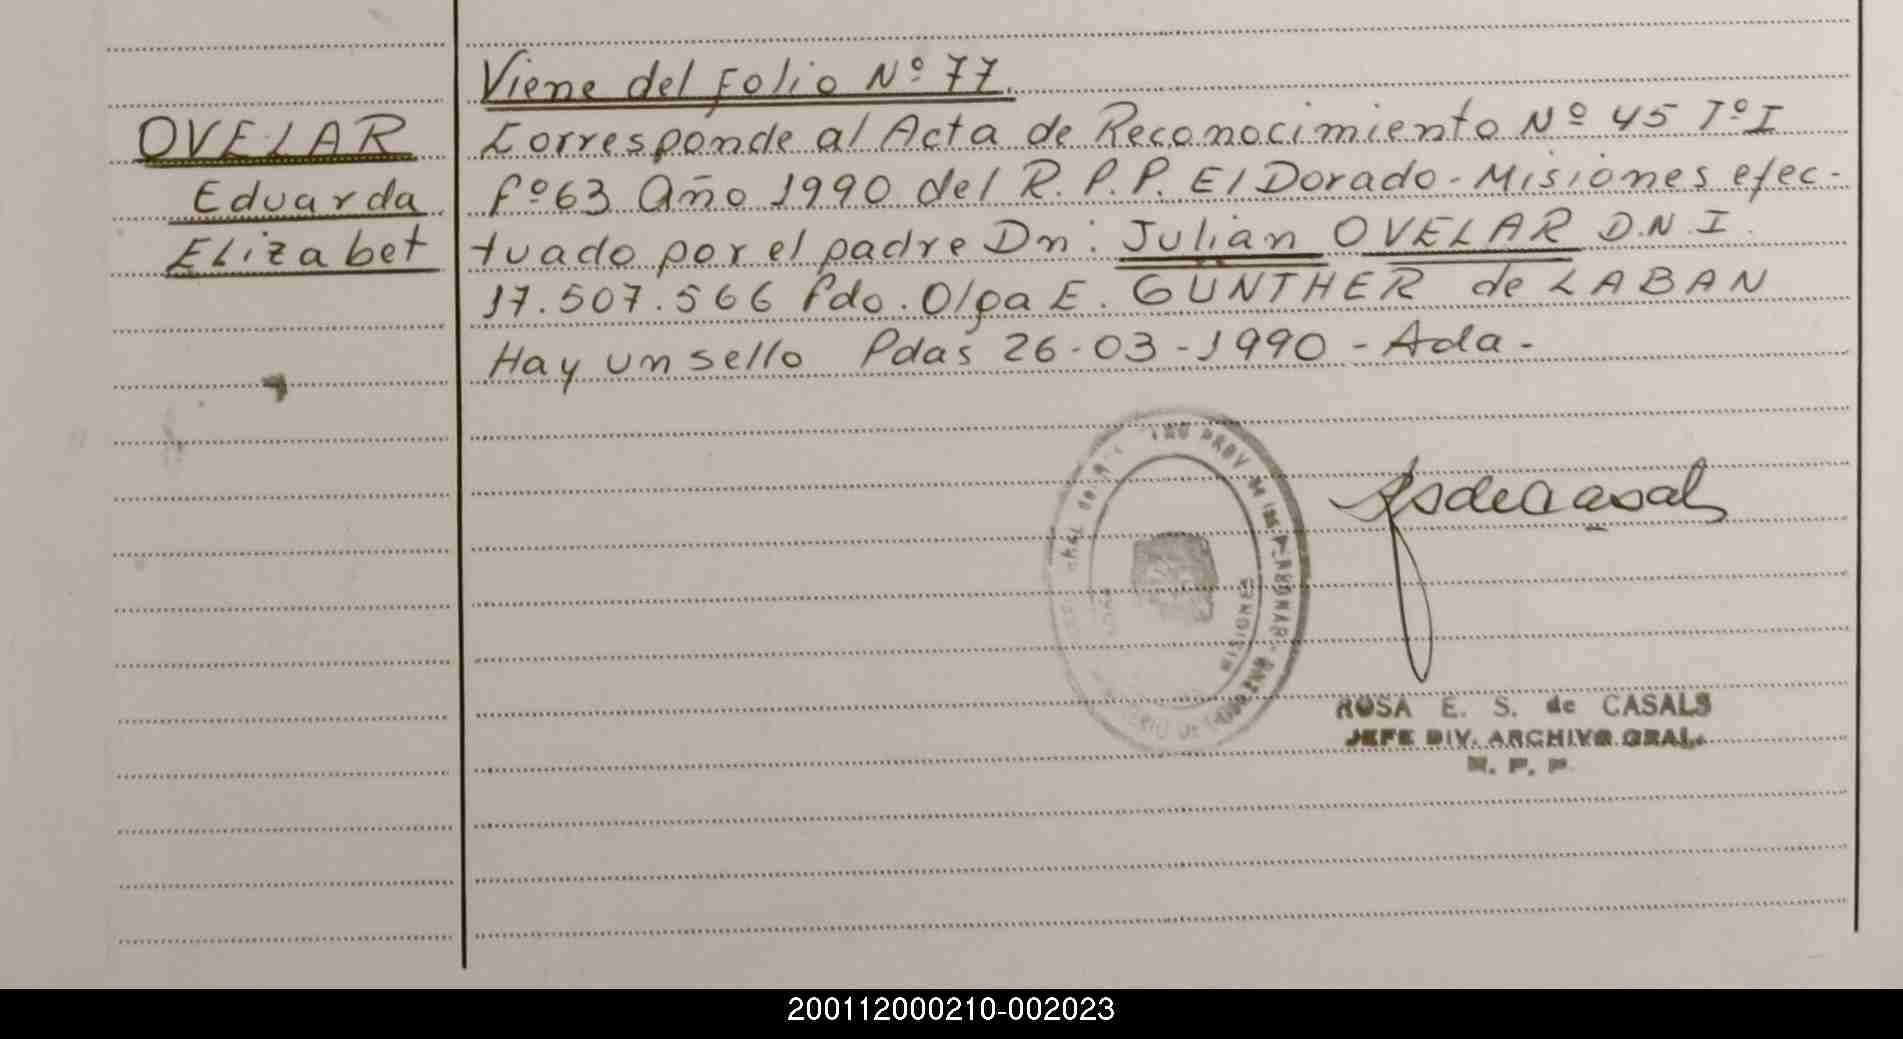 Viene del Folio Nº 77.
OVELAR
Eduarda
Elizabet
Corresponde al Acta de Reconocimiento Nº 45 Tº I
fº 63 Año 1990 del R.P.P. El Dorado - Misiones efec-
tuado por el padre Dn: Julián OVELAR D.N.I.
17.507.566 fdo. Olga E. GUNTHER de LABAN
Hay un sello Pdas 26-03-1990 - Ada -
PROV DE LAS PERSONAS
MISIONES
ROSA E. S. de CASALS
JEFE DIV. ARCHIVO GRAL.
R. P. P.
200112000210-002023